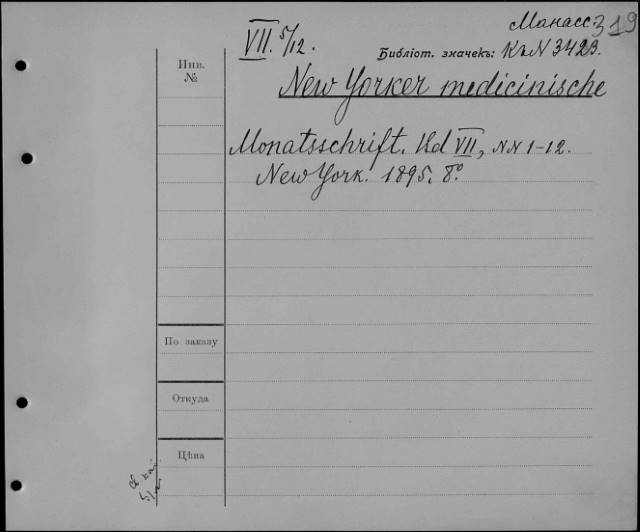 Манасс. 319
VII. 5/12.
Библіот. значекъ: КъN 3423.
Инв.
№
New Yorker medicinische
Monatsschrift. Bd VII, NN 1-12.
New York. 1895. 8º
По заказу
Откуда
Цѣна